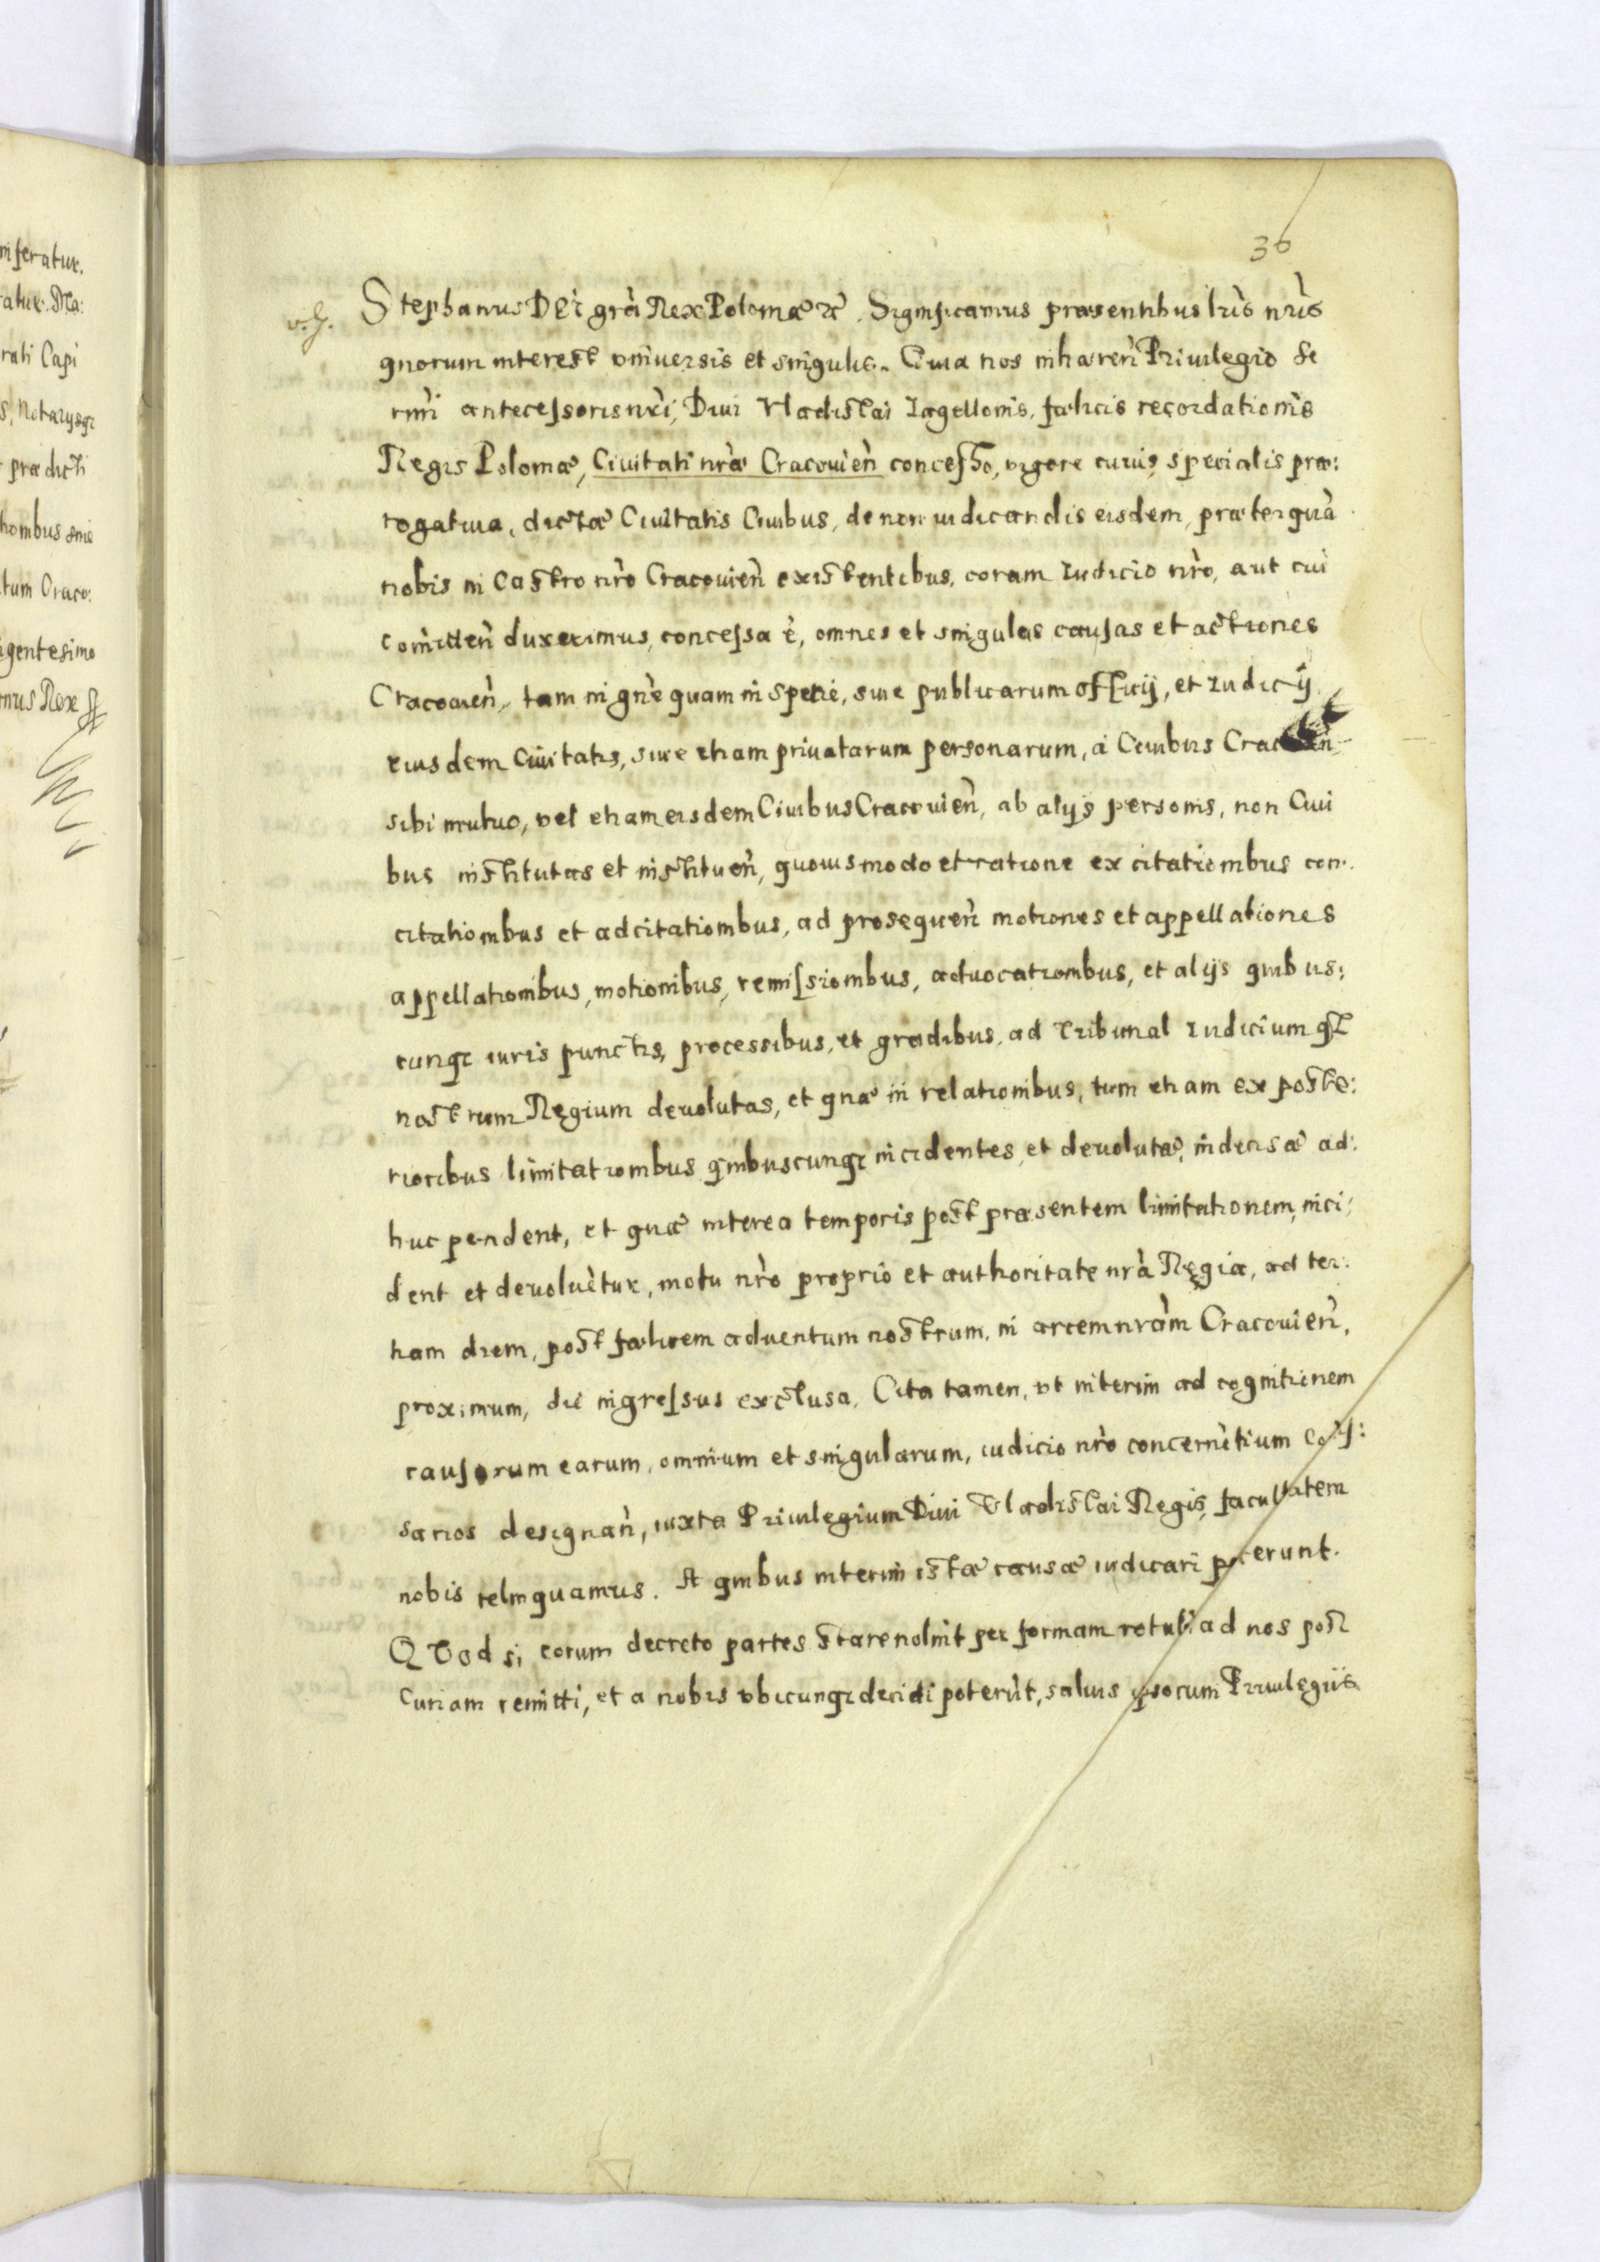 30
v. g.
Stephanus DEi grà Rex Poloniæ &c. Significamus præsentibus lrìs nrìs
quorum interest vniuersis et singulis. Quia nos inhæreǹ Priuilegio Se
rmi antecessoris nrì, Diui Vladislai Iagellonis, fælicis recordationis
Regis Poloniæ, Ciuitati nræ Cracouieǹ concesso, vigore cuius, specialis præ:
rogatiua, dictæ Ciuitatis Ciuibus, de non iudicandis eisdem, præterquà
nobis in Castro nrò Cracouieǹ existentibus, coram Iudicio nrò, aut cui
comitteǹ duxerimus, concessa è, omnes et singulas causas et actiones
Cracouieǹ, tam in gnè quam in specie, siue publicarum officij, et Iudicij
eiusdem Ciuitatis, siue etiam priuatarum personarum, à Ciuibus
sibi mutuo, vel etiam eisdem Ciuibus Cracouieǹ, ab alijs personis, non Ciui
bus institutas et instituèn, quouis modo et ratione ex citationibus con:
citationibus et adcitationibus, ad prosequeǹ motiones et appellationes
appellationibus, motionibus, remissionibus, aduocationibus, et alijs quibus:
cunqz iuris punctis, processibus, et gradibus, ad Tribunal Iudiciumqz
nostrum Regium deuolutas, et quæ in relationibus, tum etiam ex poste:
rioribus limitationibus quibuscunqz incidentes, et deuolutæ, indecisæ ad:
huc pendent, et quæ interea temporis post præsentem limitationem, inci:
dent et deuoluètur, motu nrò proprio et authoritate nrà Regia, ad ter:
tiam diem, post fælicem aduentum nostrum, in arcem nràm Cracouieǹ,
proximum, die ingressus exclusa. Cita tamen, vt interim ad cognitionem
causarum earum, omnium et singularum, iudicio nrò concernètium
sarios designaǹ, iuxta Priuilegium Diui Vladislai Regis, facultatem
nobis relinquamus. A quibus interim istæ causæ iudicari poterunt.
QVod si eorum decreto partes stare nolint per formam rotuli ad nos post
Curiam remitti, et a nobis vbicunqz decidi poterùt, saluis ipsorum Priuilegiis